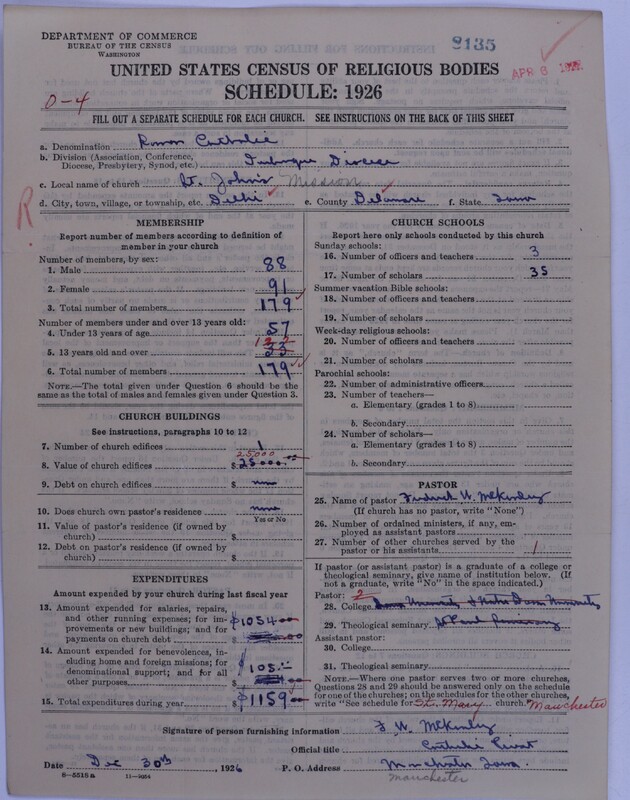 DEPARTMENT OF COMMERCE
BUREAU OF THE CENSUS
WASHINGTON
9135
APR 6
UNITED STATES CENSUS OF RELIGIOUS BODIES
SCHEDULE: 1926
0-4
FILL OUT A SEPARATE SCHEDULE FOR EACH CHURCH. SEE INSTRUCTIONS ON THE BACK OF THIS SHEET
a. Denomination Roman Catholic
b. Division (Association, Conference, Diocese, Presbytery, Synod, etc.) Dubuque Diocese
c. Local name of church St. John's Mission
d. City, town, village, or township, etc. Delhi e. County Delaware f. State Iowa
R
MEMBERSHIP
Report number of members according to definition of member in your church
Number of members, by sex:
1. Male 88
2. Female 91
3. Total number of members 179
Number of members under and over 13 years old:
4. Under 13 years of age 57
5. 13 years old and over 122
6. Total number of members 179
NOTE.—The total given under Question 6 should be the same as the total of males and females given under Question 3.
CHURCH BUILDINGS
See instructions, paragraphs 10 to 12
7. Number of church edifices 1
25,000
8. Value of church edifices $ 25000
9. Debt on church edifices $ none
10. Does church own pastor's residence none
Yes or No
11. Value of pastor's residence (if owned by church) $
12. Debt on pastor's residence (if owned by church) $
EXPENDITURES
Amount expended by your church during last fiscal year
13. Amount expended for salaries, repairs, and other running expenses; for improvements or new buildings; and for payments on church debt $1054
14. Amount expended for benevolences, including home and foreign missions; for denominational support; and for all other purposes $ 105
15. Total expenditures during year $1159
CHURCH SCHOOLS
Report here only schools conducted by this church
Sunday schools:
16. Number of officers and teachers 3
17. Number of scholars 35
Summer vacation Bible schools:
18. Number of officers and teachers
19. Number of scholars
Week-day religious schools:
20. Number of officers and teachers
21. Number of scholars
Parochial schools:
22. Number of administrative officers
23. Number of teachers—
a. Elementary (grades 1 to 8)
b. Secondary
24. Number of scholars—
a. Elementary (grades 1 to 8)
b. Secondary
PASTOR
25. Name of pastor Frederick W. McKinley
(If church has no pastor, write "None")
26. Number of ordained ministers, if any, employed as assistant pastors
27. Number of other churches served by the pastor or his assistants 1
If pastor (or assistant pastor) is a graduate of a college or theological seminary, give name of institution below. (If not a graduate, write "No" in the space indicated.)
Pastor: 2
28. College
29. Theological seminary St Paul Seminary
Assistant pastor:
30. College
31. Theological seminary
NOTE.—Where one pastor serves two or more churches, Questions 28 and 29 should be answered only on the schedule for one of the churches; on the schedules for the other churches, write "See schedule for St. Mary church." Manchester
Signature of person furnishing information F W. McKinley
Official title Catholic Priest
Date Dec 30th, 1926 P. O. Address Manchester Iowa.
Manchester
8—5518a 11—9264